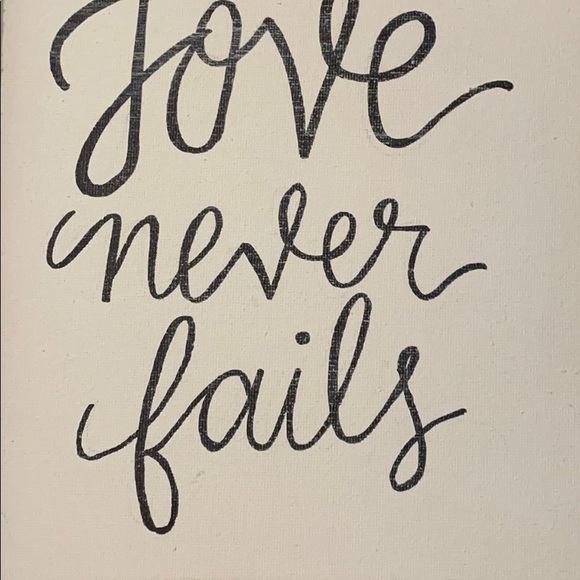 Love
never
fails